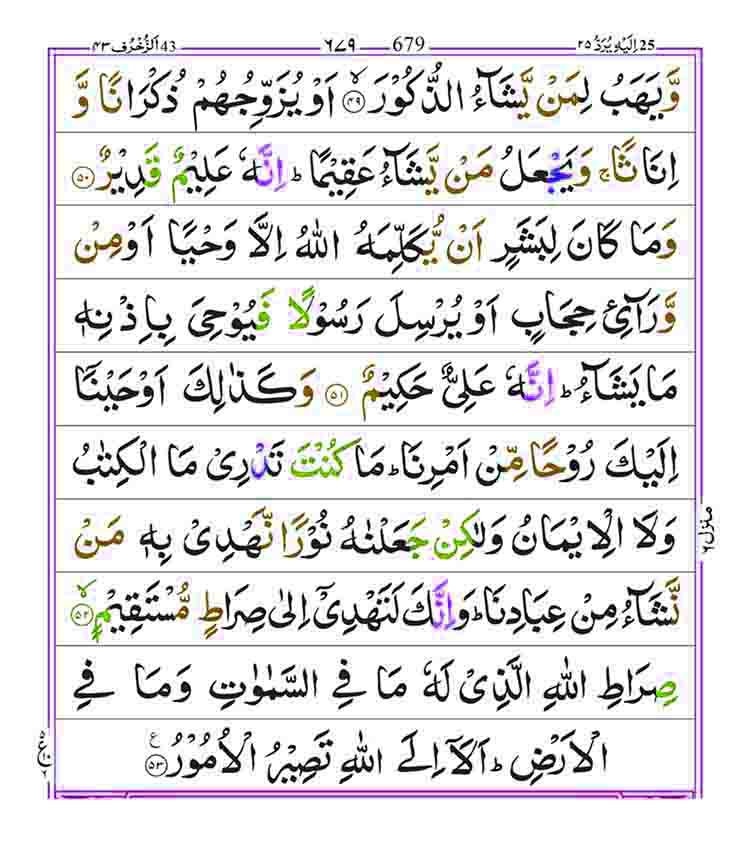 اِلَيْهِ يُرَدُّ ٢٥ 25 679 ٦٧٩ اَلزُّخْرُف ٤٣ 43
وَّيَهَبُ لِمَنْ يَّشَآءُ الذُّكُوْرَ ۙ‏﴿۴۹﴾ اَوْ يُزَوِّجُهُمْ ذُكْرَانًا وَّ
اِنَاثًا ۚ وَيَجْعَلُ مَنْ يَّشَآءُ عَقِيْمًا ؕ اِنَّهٗ عَلِيْمٌ قَدِيْرٌ ﴿۵۰﴾
وَمَا كَانَ لِبَشَرٍ اَنْ يُّكَلِّمَهُ اللّٰهُ اِلَّا وَحْيًا اَوْ مِنْ
وَّرَآئِ حِجَابٍ اَوْ يُرْسِلَ رَسُوْلًا فَيُوْحِىَ بِاِذْنِهٖ
مَا يَشَآءُ ؕ اِنَّهٗ عَلِىٌّ حَكِيْمٌ ﴿۵۱﴾ وَكَذٰلِكَ اَوْحَيْنَاۤ
اِلَيْكَ رُوْحًا مِّنْ اَمْرِنَا ؕ مَا كُنْتَ تَدْرِىْ مَا الْكِتٰبُ
وَلَا الْاِيْمَانُ وَلٰكِنْ جَعَلْنٰهُ نُوْرًا نَّهْدِىْ بِهٖ مَنْ
نَّشَآءُ مِنْ عِبَادِنَا ؕ وَاِنَّكَ لَتَهْدِىْۤ اِلٰى صِرَاطٍ مُّسْتَقِيْمٍ ۙ‏﴿۵۲﴾
صِرَاطِ اللّٰهِ الَّذِىْ لَهٗ مَا فِى السَّمٰوٰتِ وَمَا فِى
الْاَرْضِ ؕ اَلَاۤ اِلَى اللّٰهِ تَصِيْرُ الْاُمُوْرُ ﴿۵۳﴾ ع
منزل ٦
ع